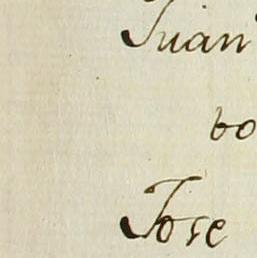 Juan
bo
Jose